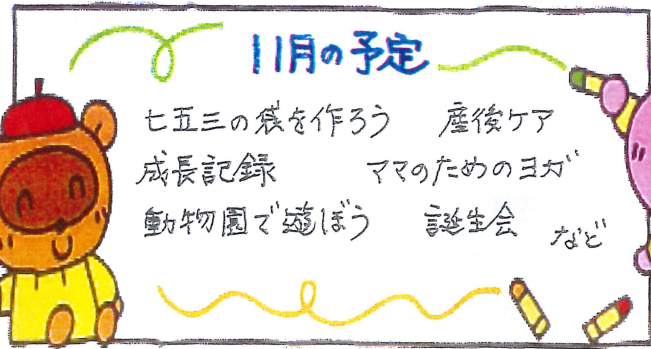 11月の予定
七五三の袋を作ろう 産後ケア
成長記録 ママのためのヨガ
動物園で遊ぼう 誕生会 など